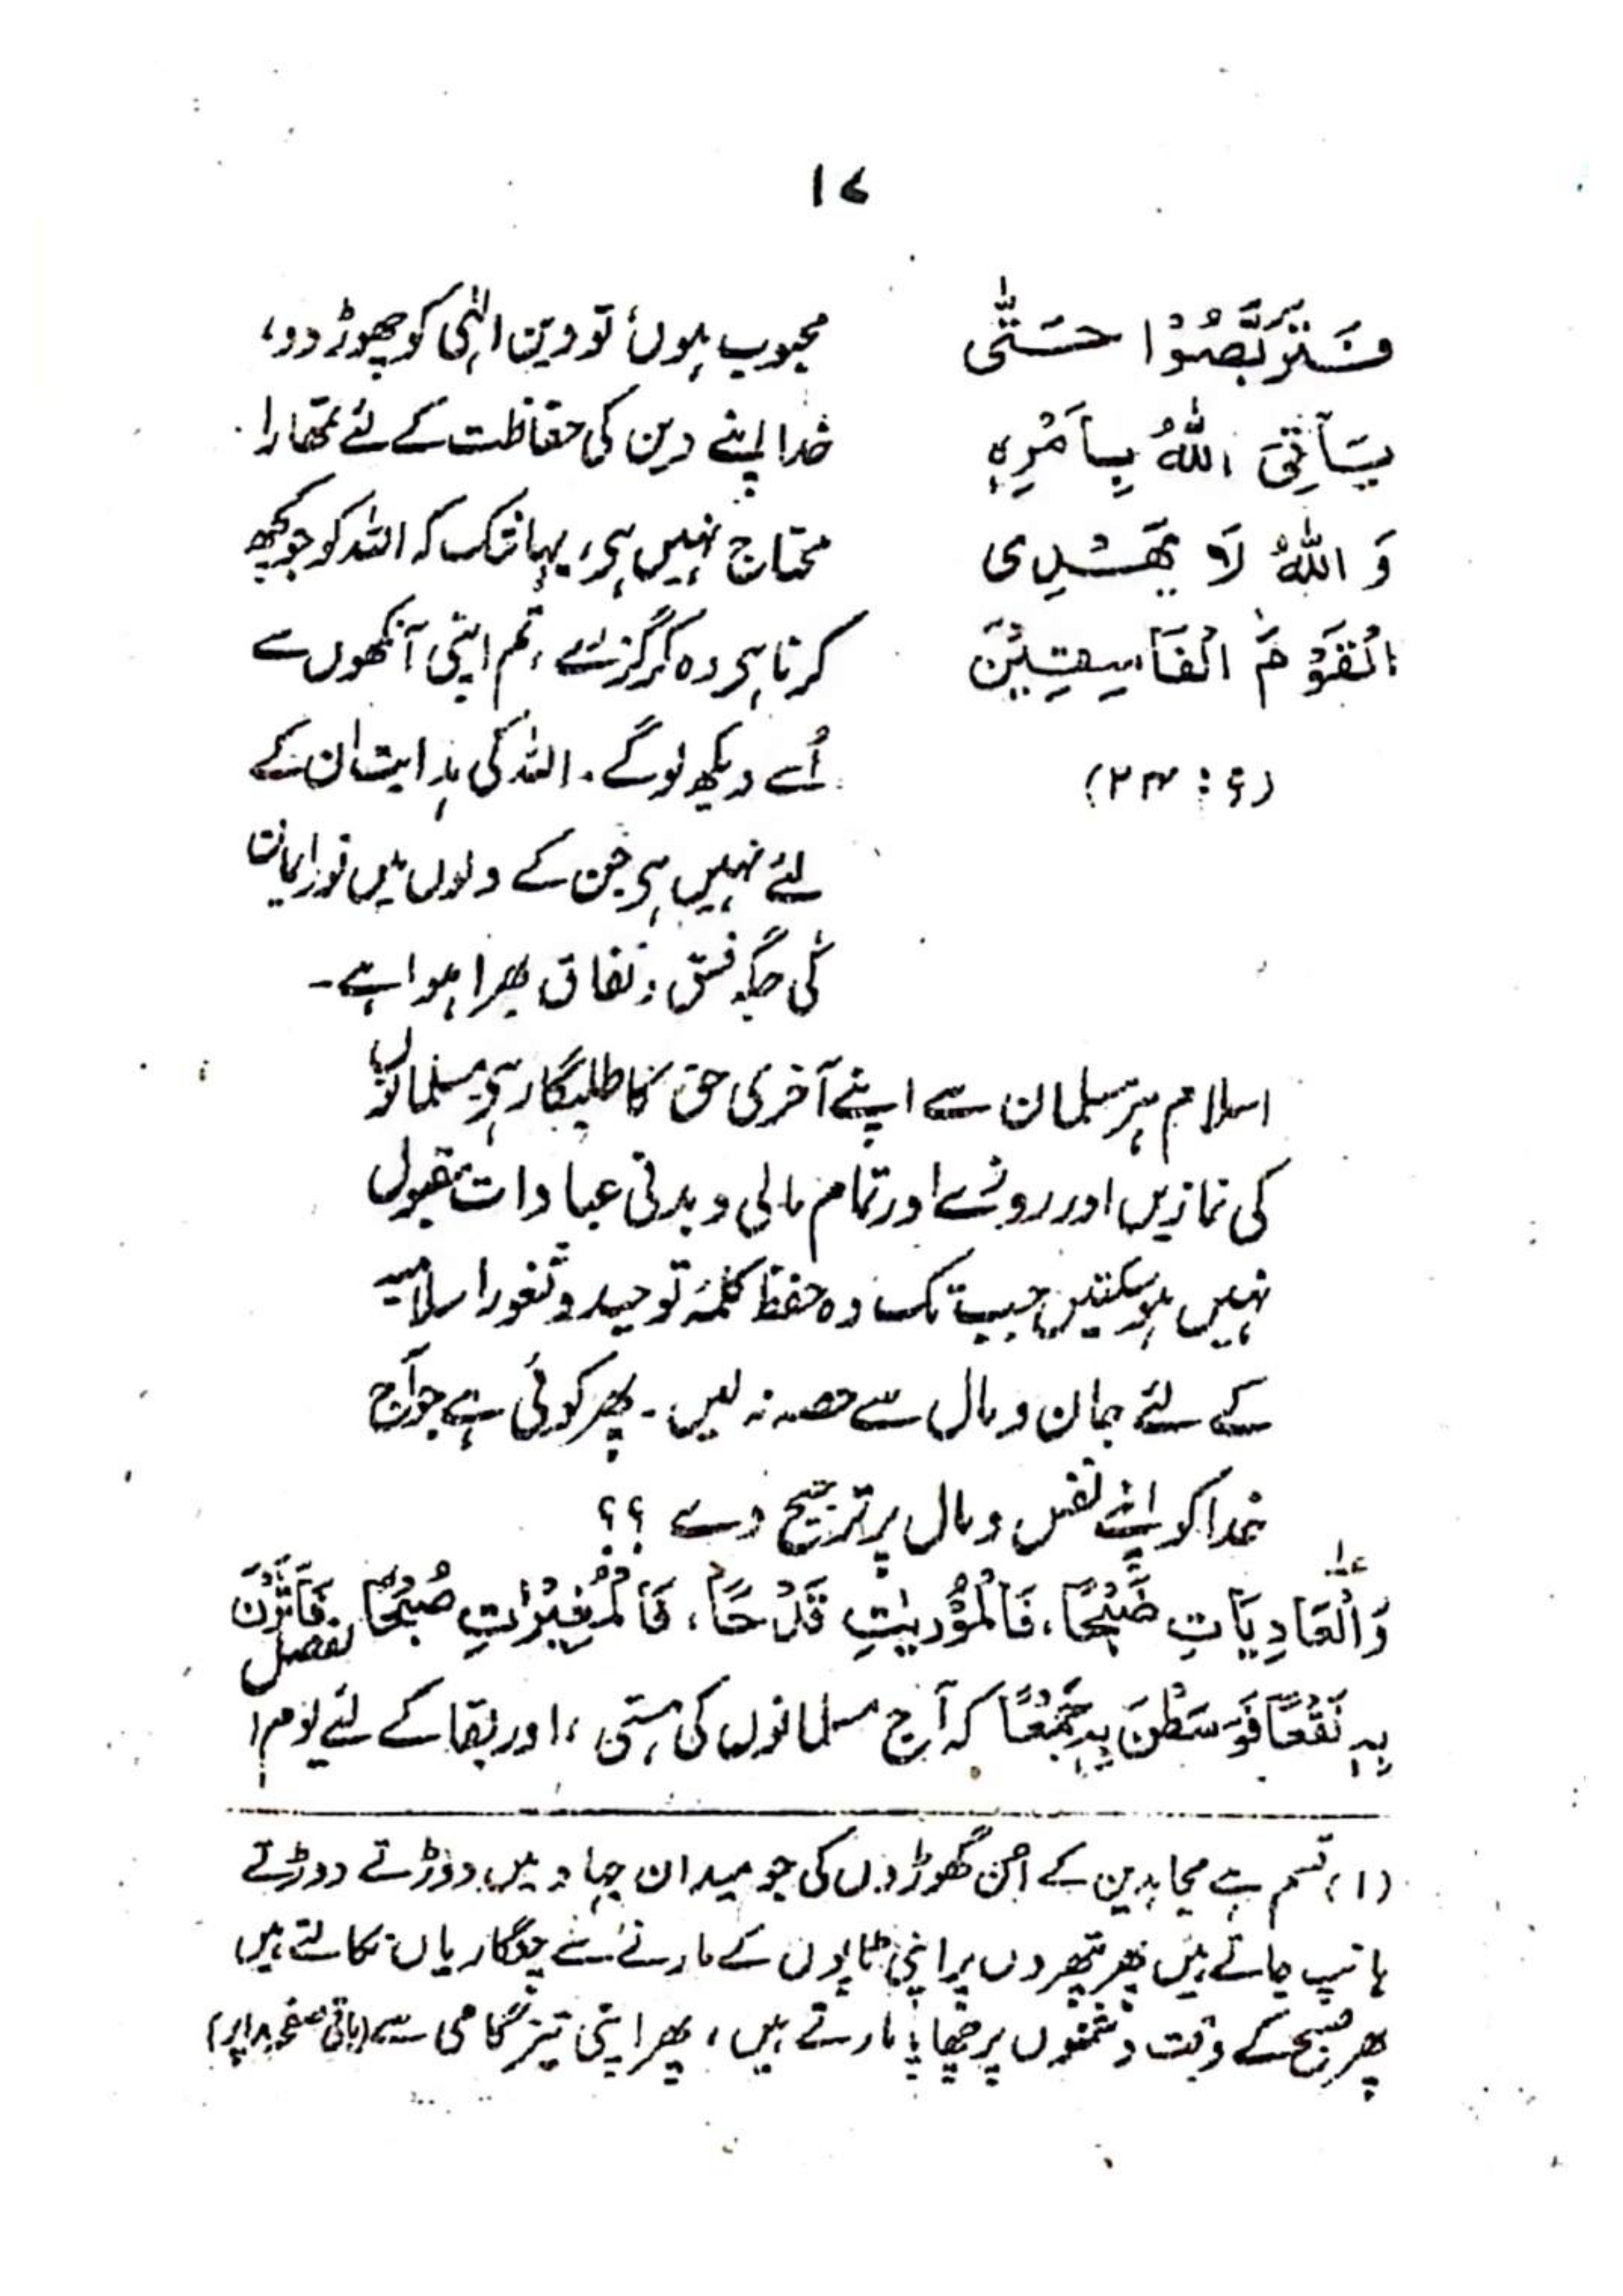 ۱۷
فَتَرَبَّصُوْا حَتّٰی
یَاْتِیَ اللّٰهُ بِاَمْرِہٖ
وَ اللّٰهُ لَا یَهْدِی
الْقَوْمَ الْفَاسِقِیْنَ
(۹ : ۲۴)
محبوب ہوں، تو دین الٰہی کو چھوڑ دو،
خدا اپنے دین کی حفاظت کے لئے تمھارا
محتاج نہیں ہی، یہانتک کہ اللہ کو جو کچھ
کرنا ہی وہ کر گزرے، تم اپنی آنکھوں سے
اُسے دیکھ لوگے۔ اللہ کی ہدایت ان کے
لئے نہیں ہی جن کے دلوں میں نور ایمان
کی جگہ فسق و نفاق بھرا ہوا ہے۔
اسلام ہر مسلمان سے اپنے آخری حق کا طلبگار ہی، مسلمانوں
کی نمازیں اور روزے اور تمام مالی و بدنی عبادات مقبول
نہیں ہو سکتیں جب تک وہ حفظ کلمۂ توحید و ثغور اسلامیہ
کے لئے جان و مال سے حصہ نہ لیں۔ پھر کوئی ہے جو آج
خدا کو اپنے نفس و مال پر ترجیح دے ؟؟
وَالْعَادِیَاتِ ضَبْحًا، فَالْمُوْرِیٰتِ قَدْحًا، فَالْمُغِیْرٰتِ صُبْحًا، فَاَثَرْنَ
بِهٖ نَقْعًا فَوَسَطْنَ بِهٖ جَمْعًا کہ آج مسلمانوں کی ہستی، اور بقا کے لئے یوم الفصل
(۱) قسم ہے مجاہدین کے اُن گھوڑوں کی جو میدان جہاد میں دوڑتے دوڑتے
ہانپ جاتے ہیں پھر پتھروں پر اپنی ٹاپوں کے مارنے سے چنگاریاں نکالتے ہیں
پھر صبح کے وقت دشمنوں پر چھاپا مارتے ہیں، پھر اپنی تیز گامی سے (باقی صفحہ ۱۸ پر)